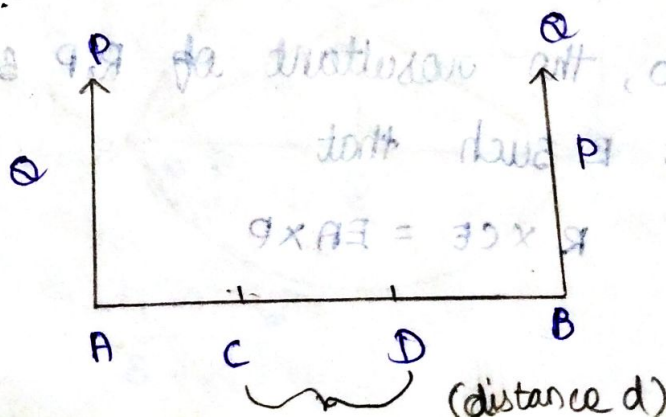 P Q
Q P
A C D B
(distance d)